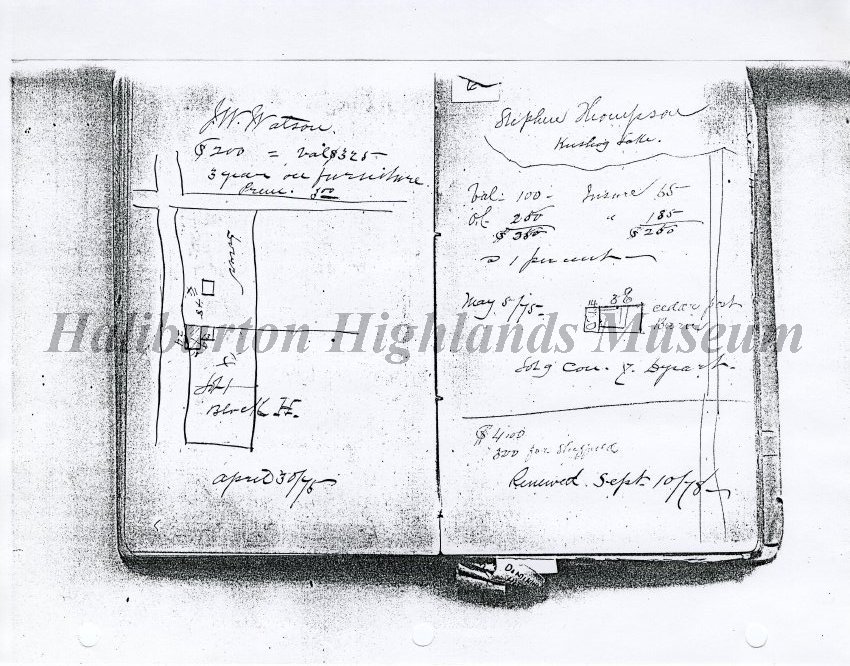 J.W. Watson.
$200 = val $325-
3 year on furniture.
Prem. 5.00
Lot 1
Block H.
April 30/75
Stephen Thompson
Kushog Lake.
Val - 100 - Insure 65
Ol- 250 " 185
$350 $250
@ 1 per cent
May 5/75- 38
14 cedar post
Barn
Lot 9 Con.
$400
300 for Sheffield
Renewed. Sept 10/78-
Haliburton Highlands Museum